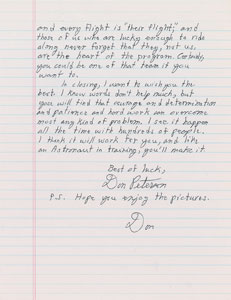 and every flight is "their flight," and
those of us who are lucky enough to ride
along never forget that they, not us,
are the heart of the program. Certainly,
you could be one of that team if you
want to.
In closing, I want to wish you the
best. I know words don't help much, but
you will find that courage and determination
and patience and hard work can overcome
most any kind of problem. I see it happen
all the time with hundreds of people.
I think it will work for you, and like
an Astronaut in training, you'll make it.
Best of luck,
Don Peterson
P.S. Hope you enjoy the pictures.
Don